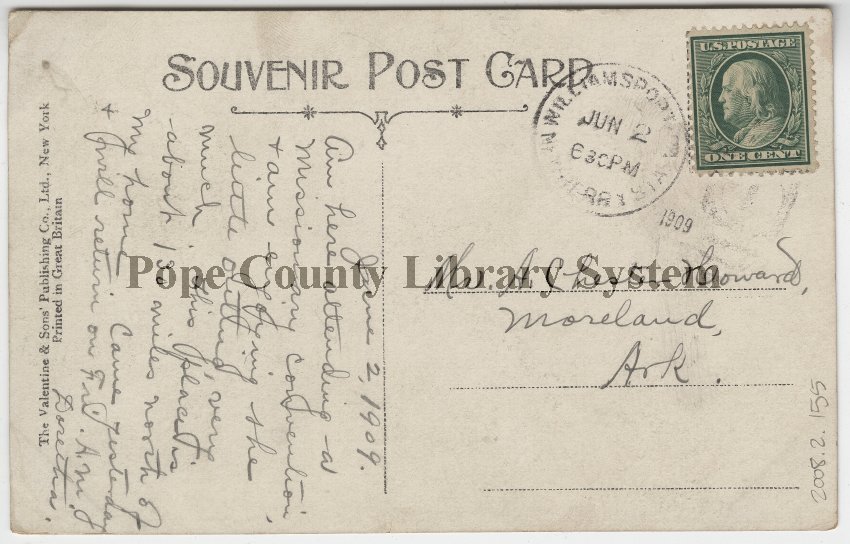 SOUVENIR POST CARD
WILLIAMSPORT
JUN 2
630PM
1909
U.S. POSTAGE
ONE CENT
June 2, 1909.
Am here attending a
Missionary convention,
+ am enjoying the
little outing very
much. This place is
about 130 miles north of
my home. Came yesterday
+ will return on Fri. A.M.
Doretha.
Mrs. A Chester Howard,
Moreland,
Ark.
The Valentine & Sons' Publishing Co., Ltd., New York
Printed in Great Britain
Pope County Library System
2008.2.155